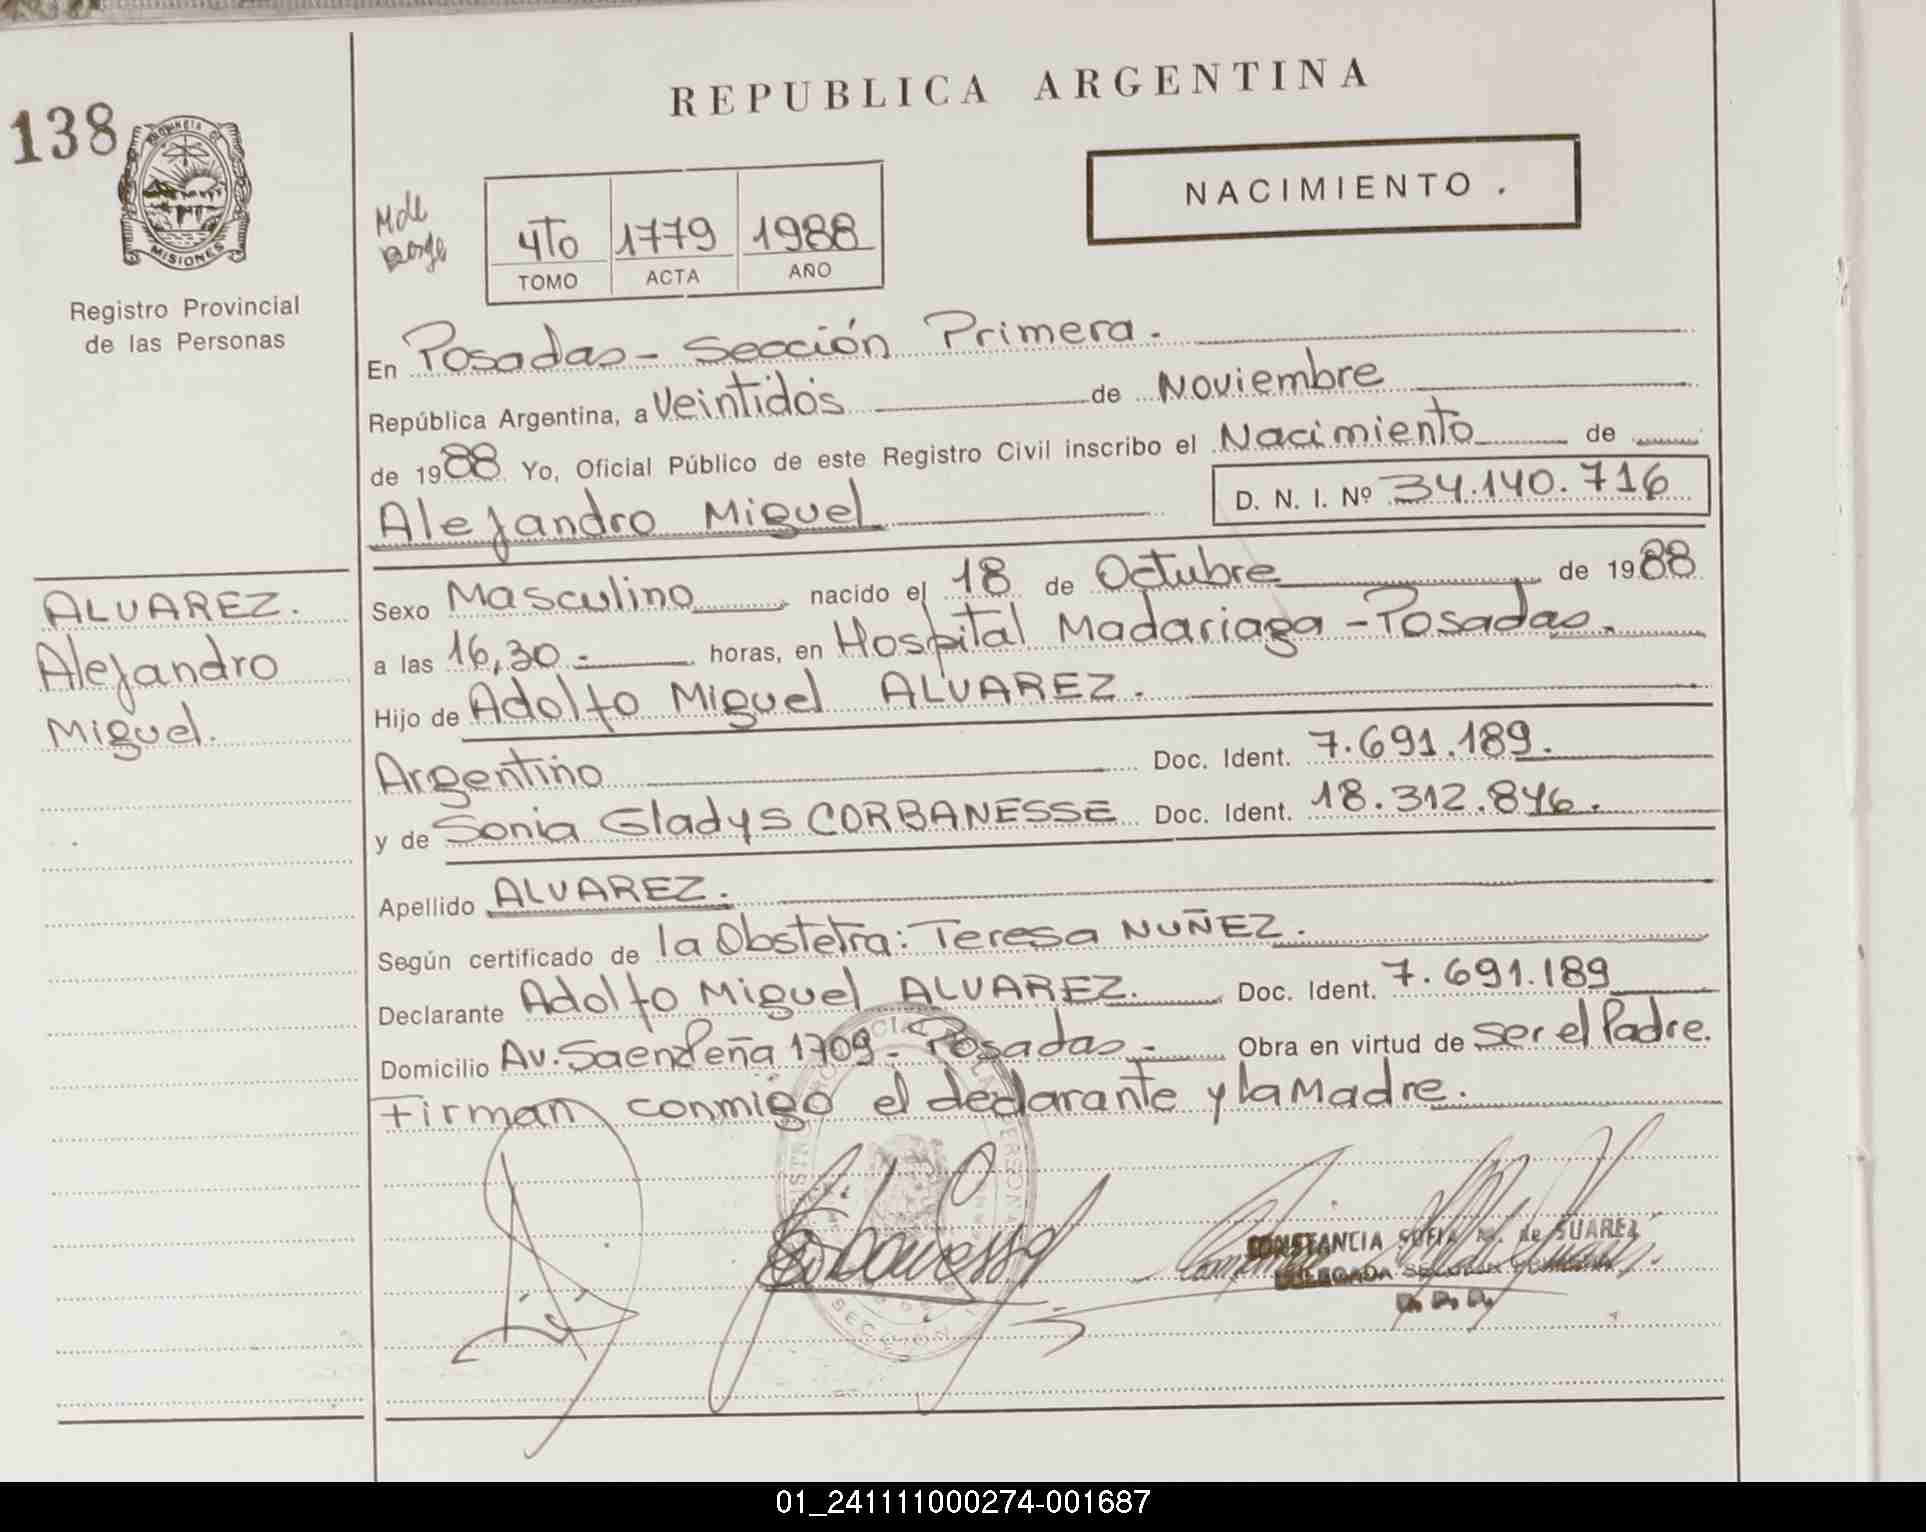 138
REPUBLICA ARGENTINA
PROVINCIA DE
MISIONES
Registro Provincial
de las Personas
NACIMIENTO.
4To 1779 1988
TOMO ACTA AÑO
En Posadas - Sección Primera.
República Argentina, a Veintidós de Noviembre
de 1988 Yo, Oficial Público de este Registro Civil inscribo el Nacimiento de
Alejandro Miguel
D. N. I. Nº 34.140.716
ALVAREZ.
Alejandro
Miguel.
Sexo Masculino nacido el 18 de Octubre de 1988
a las 16,30.- horas, en Hospital Madariaga - Posadas.
Hijo de Adolfo Miguel ALVAREZ.
Argentino Doc. Ident. 7.691.189.
y de Sonia Gladys CORBANESSE Doc. Ident. 18.312.846.
Apellido ALVAREZ.
Según certificado de la Obstetra: Teresa NUÑEZ.
Declarante Adolfo Miguel ALVAREZ. Doc. Ident. 7.691.189
Domicilio Av. Saenz Peña 1709 - Posadas - Obra en virtud de ser el Padre.
Firman conmigo el declarante y la Madre.
CONSTANCIA SOFIA M. de SUAREZ
DELEGADA SECCION PRIMERA
01_241111000274-001687